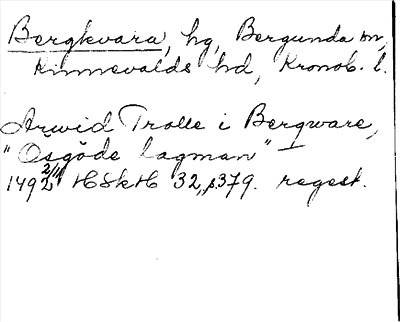 Bergkvara, hg, Bergunda sn,
Kinnevalds hd, Kronob. l.
Arwid Trolle i Bergware,
"Osgöde lagman"
1492 2/11 HSkH 32, s379. regest.